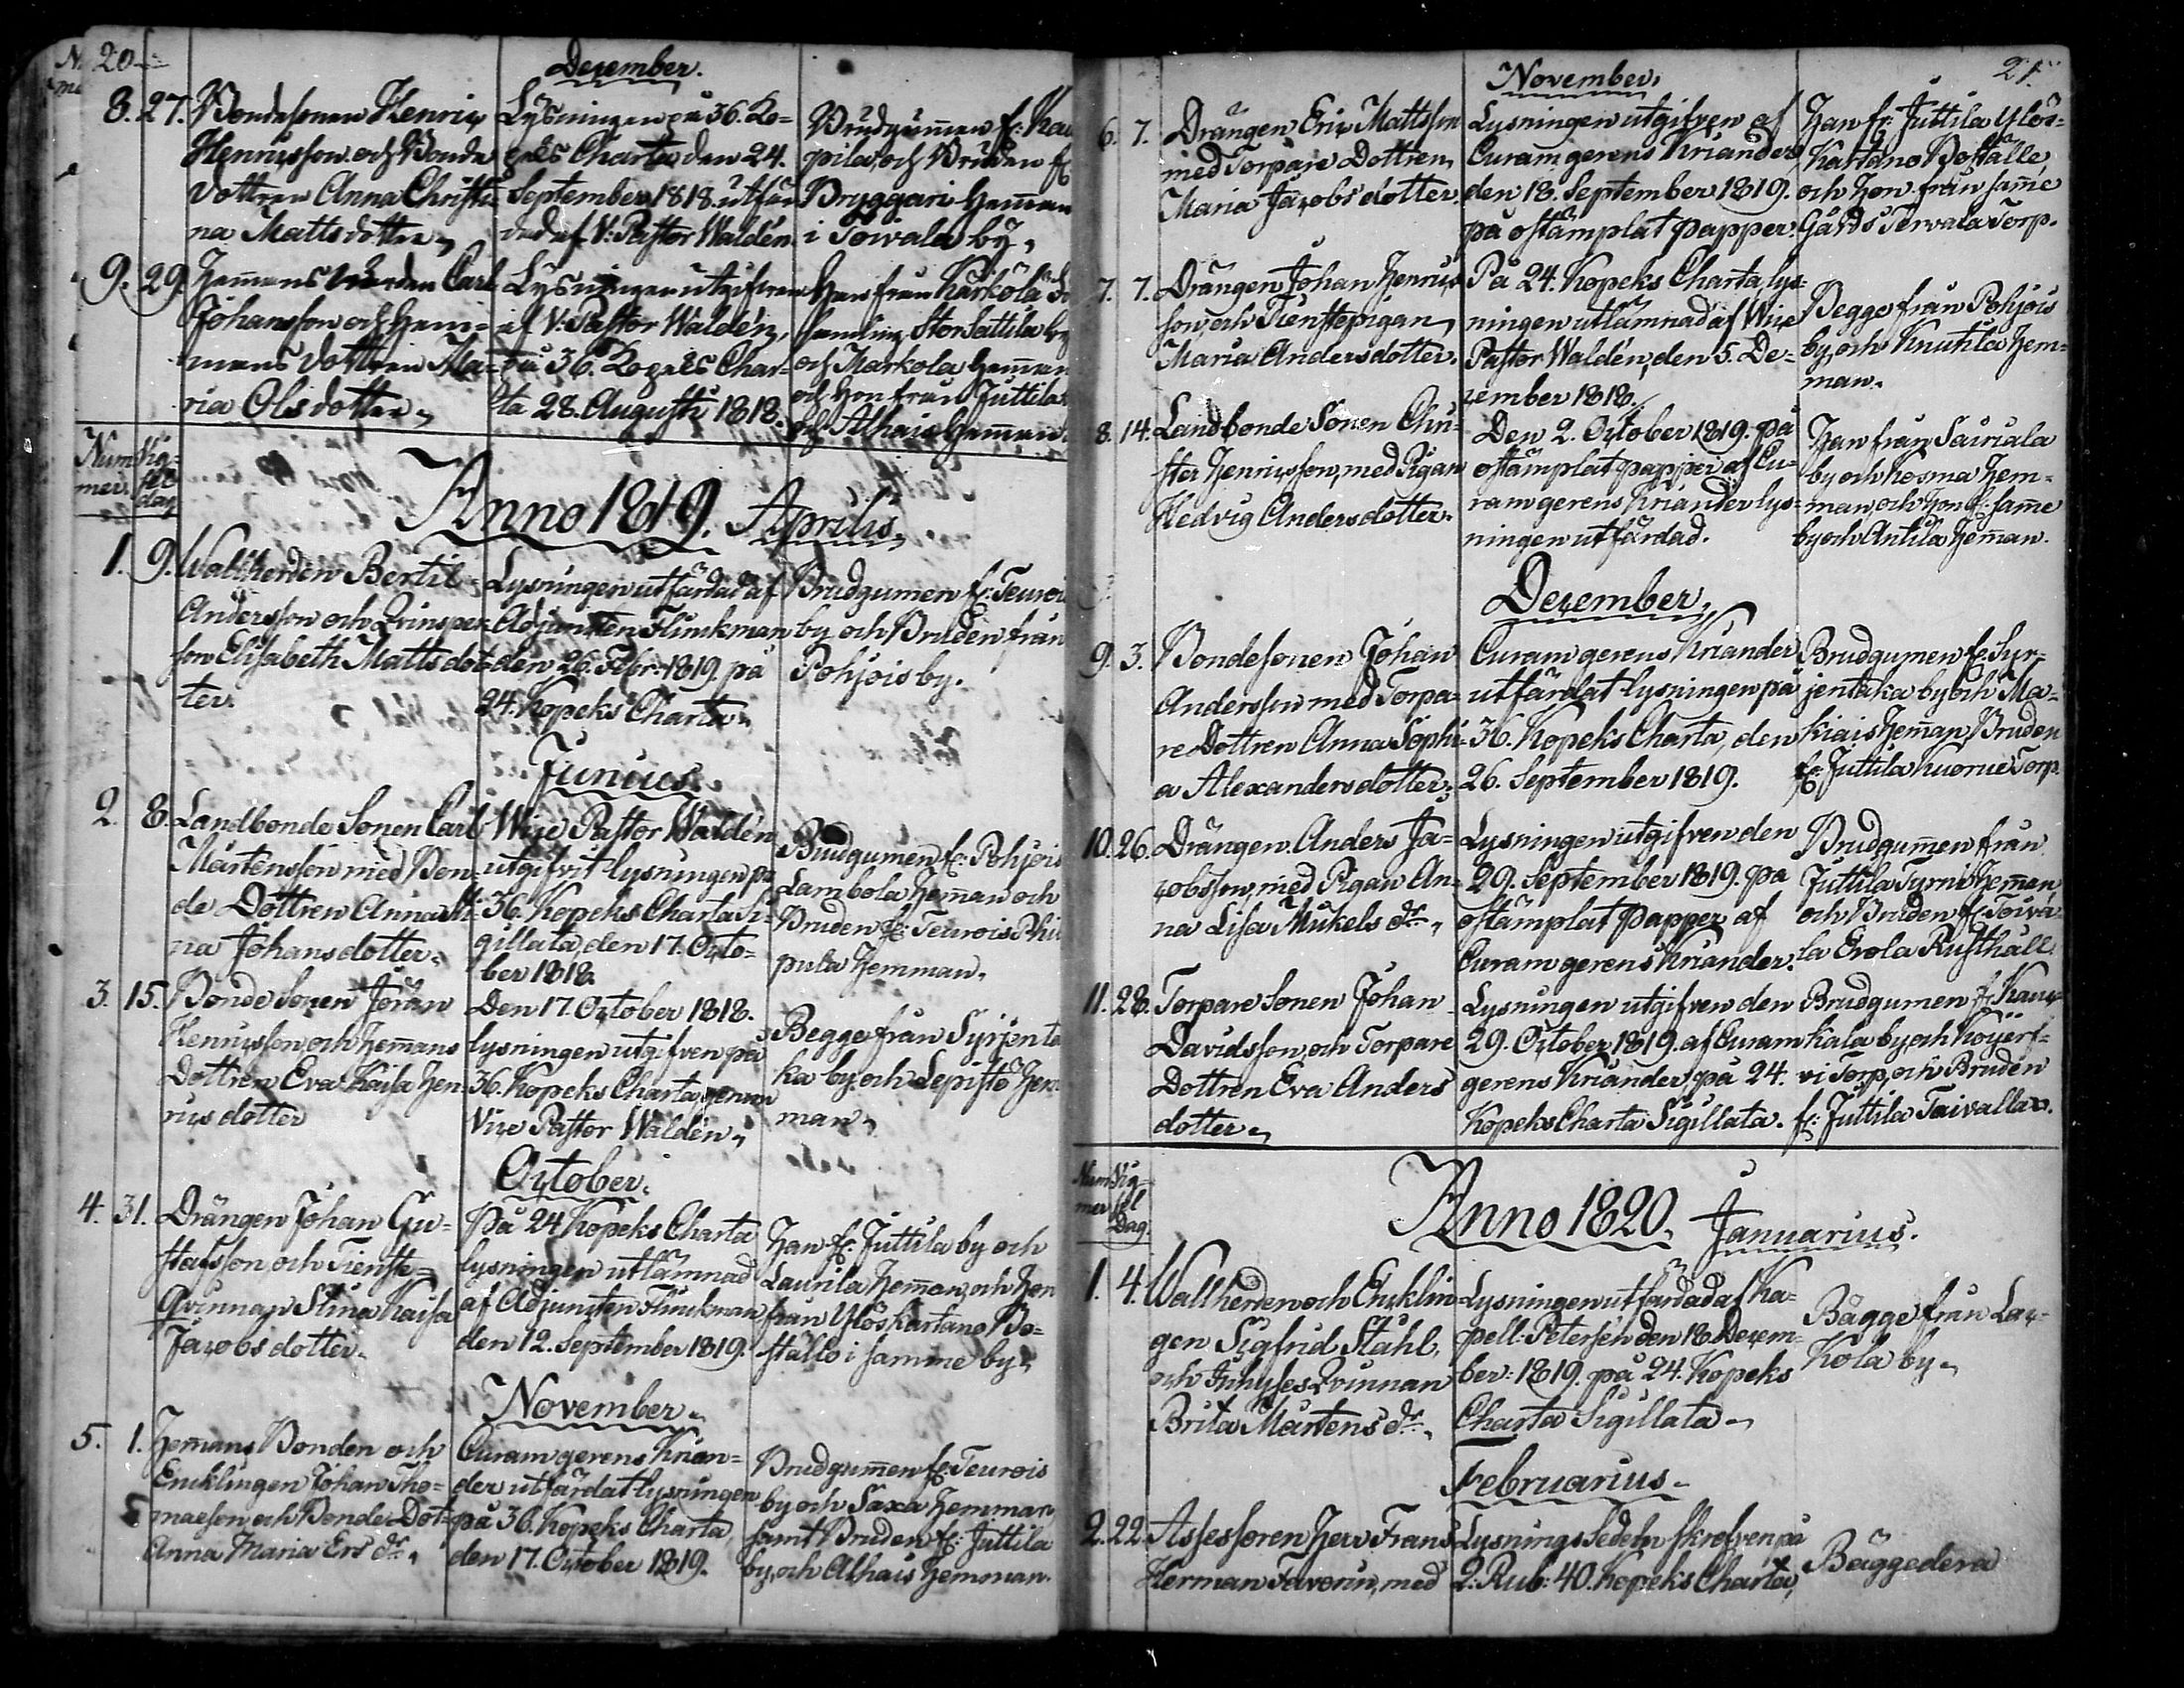 20
December.
8. 27. Bondesonen Henric
Henricsson och Bonde
dottren Anna Christi-
na Matts dotter,
Lysningen på 36. Ko-
peks Charta den 24.
September 1818. utfär
dad af V: Pastor Waldén.
Brudgummen fr:
pila, och Bruden fr:
Bryggari Hemman
i Toivala by,
9. 29. Hemmans Carl
Johansson och Hem-
mans dottren Ma-
ria Ols dotter,
Lysningen utgifven
af V: Pastor Waldén,
på 36. Kopeks Char-
ta 28. Augusti 1818.
Han från Kärkölä
Stor Sattila by
och Markola Hemman
och Hon från Juttila
och Alhais Hemman.
Num
mer.
Vig-
sel
dag
Anno 1819. Aprilis,
1. 9. Wallherden Bertil
Andersson och Qvinsper-
son Elisabeth Matts dot-
ter.
Lysningen utfärdad af
Adjuncten Flinckman
den 26. Febr: 1819. på
24. Kopeks Charta,
Brudgumen fr: Teurois
by och Bruden från
Pohjois by.
Junius.
2. 8. Landbonde Sonen Carl
Mårtensson med Bon-
de Dottren Anna Sti-
na Johans dotter,
Wice Pastor Waldén
utgifvit lysningen på
36. Kopeks Charta Si-
gillata, den 17. Octo-
ber 1818.
Brudgumen fr: Pohjois
Lambola Hemman och
Bruden fr: Teurois
pula Hemman,
3. 15. Bonde Sonen Johan
Henricsson, och Hemmans
Dottren Eva Kaisa Hen
rics dotter
Den 17. October 1818.
lysningen utgifven på
36. Kopeks Charta, genom
Vice Pastor Waldén,
Begge från Syrjenta
ka by och Lepistö Hem-
man,
October.
4. 31. Drängen Johan Gu-
stafsson och Tienste-
Qvinnan Stina Kaisa
Jacobs dotter.
På 24 Kopeks Charta
lysningen utlämnad
af Adjuncten Flinckman
den 12. September 1819.
Han fr: Juttila by och
Laurila Hemman, och Hon
från Yloskartano Bo-
ställe i samme by,
November,
5. 1. Hemans Bonden och
Encklingen Johan Tho-
maeson, och Bonde Dot-
Anna Maria Ers dr.
Curam gerens Krian-
der utfärdat lysningen
på 36. Kopeks Charta,
den 17. October 1819.
Brudgummen fr: Teurois
by och Saxa Hemman,
samt Bruden fr: Juttila
by, och Alhais Hemman.
21.
November,
6. 7. Drängen Eric Mattsson
med Torpare Dottren
Maria Jacobs dotter.
Lysningen utgifven af
Curam gerens Kriander
den 18. September 1819.
på ostämplat papper.
Han fr: Juttila Ylös-
Kartano Boställe,
och Hon från samme
Gårds Tervala Torp.
7. 7. Drängen Johan Henrics
son, och Tienstepigan
Maria Anders dotter.
På 24. Kopeks Charta, lys-
ningen utlämnad af Wice
Pastor Waldén, den 5. De-
cember 1818.
Begge från Pohjois
by, och Knutila Hem-
man.
8. 14. Landbonde Sonen Chri-
ster Henricsson, med Pigan
Hedvig Anders dotter.
Den 2. October 1819. på
ostämplat papper af Cu-
ram gerens Kriander lys-
ningen utfärdad.
Han från Sairiala
by och Kosma Hem-
man, och Hon fr: samme
by och Antila Hemman.
December,
9. 3. Bondesonen Johan
Andersson med Torpa-
re Dottren Anna Sophi-
a Alexanders dotter,
Curam gerens Kriander
utfärdat lysningen på
36. Kopeks Charta, den
26. September 1819.
Brudgumen fr: Syr-
jentaka by och Ma-
kiais Hemman, Bruden
fr: Juttila Torp.
10. 26. Drängen Anders Ja-
cobsson, med Pigan An-
na Lisa Mickels dr.,
Lysningen utgifven den
29. September 1819. på
ostämplat Papper af
Curam gerens Kriander.
Brudgummen från
Juttila Tyrni Hemman
och Bruden fr: Toiva-
la Erola Rusthåll
11. 28. Torpare Sonen Johan
Davidsson, och Torpare
Dottren Eva Anders
dotter,
Lysningen utgifven den
29. October 1819. af Curam
gerens Kriander, på 24.
Kopeks Charta Sigillata.
Brudgumen fr: Kau-
kala by, och Köyjerf-
vi Torp, och Bruden
fr: Juttila Taivalla.
Num
mer
Vig-
sel
Dag.
Anno 1820. Januarius.
1. 4. Wallherden och Encklin-
gen Sigfrid Ståhl,
och Inhyses Qvinnan
Brita Mårtens dr.,
Lysningen utfärdad af Ka-
pell: Petersén den 18 Decem-
ber: 1819. på 24. Kopeks
Charta Sigillata,
Bägge från Lax-
kola by,
Februarius.
2. 22. Assessoren Herr Frans
Herman Favorin, med
Lysnings Sedeln skrefven på
2. Rub: 40. Kopeks Charta,
Bäggedera